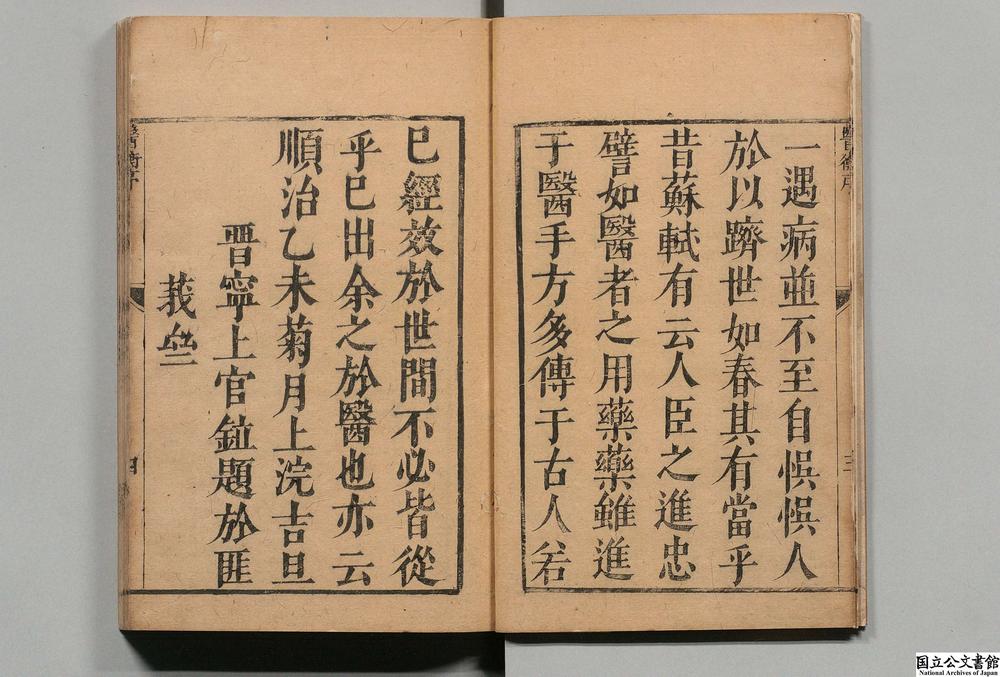 一遇病並不至自悞悞人
於以躋世如春其有當乎
昔蘇軾有云人臣之進忠
譬如醫者之用藥藥雖進
于醫手方多傳于古人若
已經效於世間不必皆從
乎已出余之於醫也亦云
順治乙未菊月上浣吉旦
晋寧上官鉝題於匪
莪
四
国立公文書館
National Archives of Japan